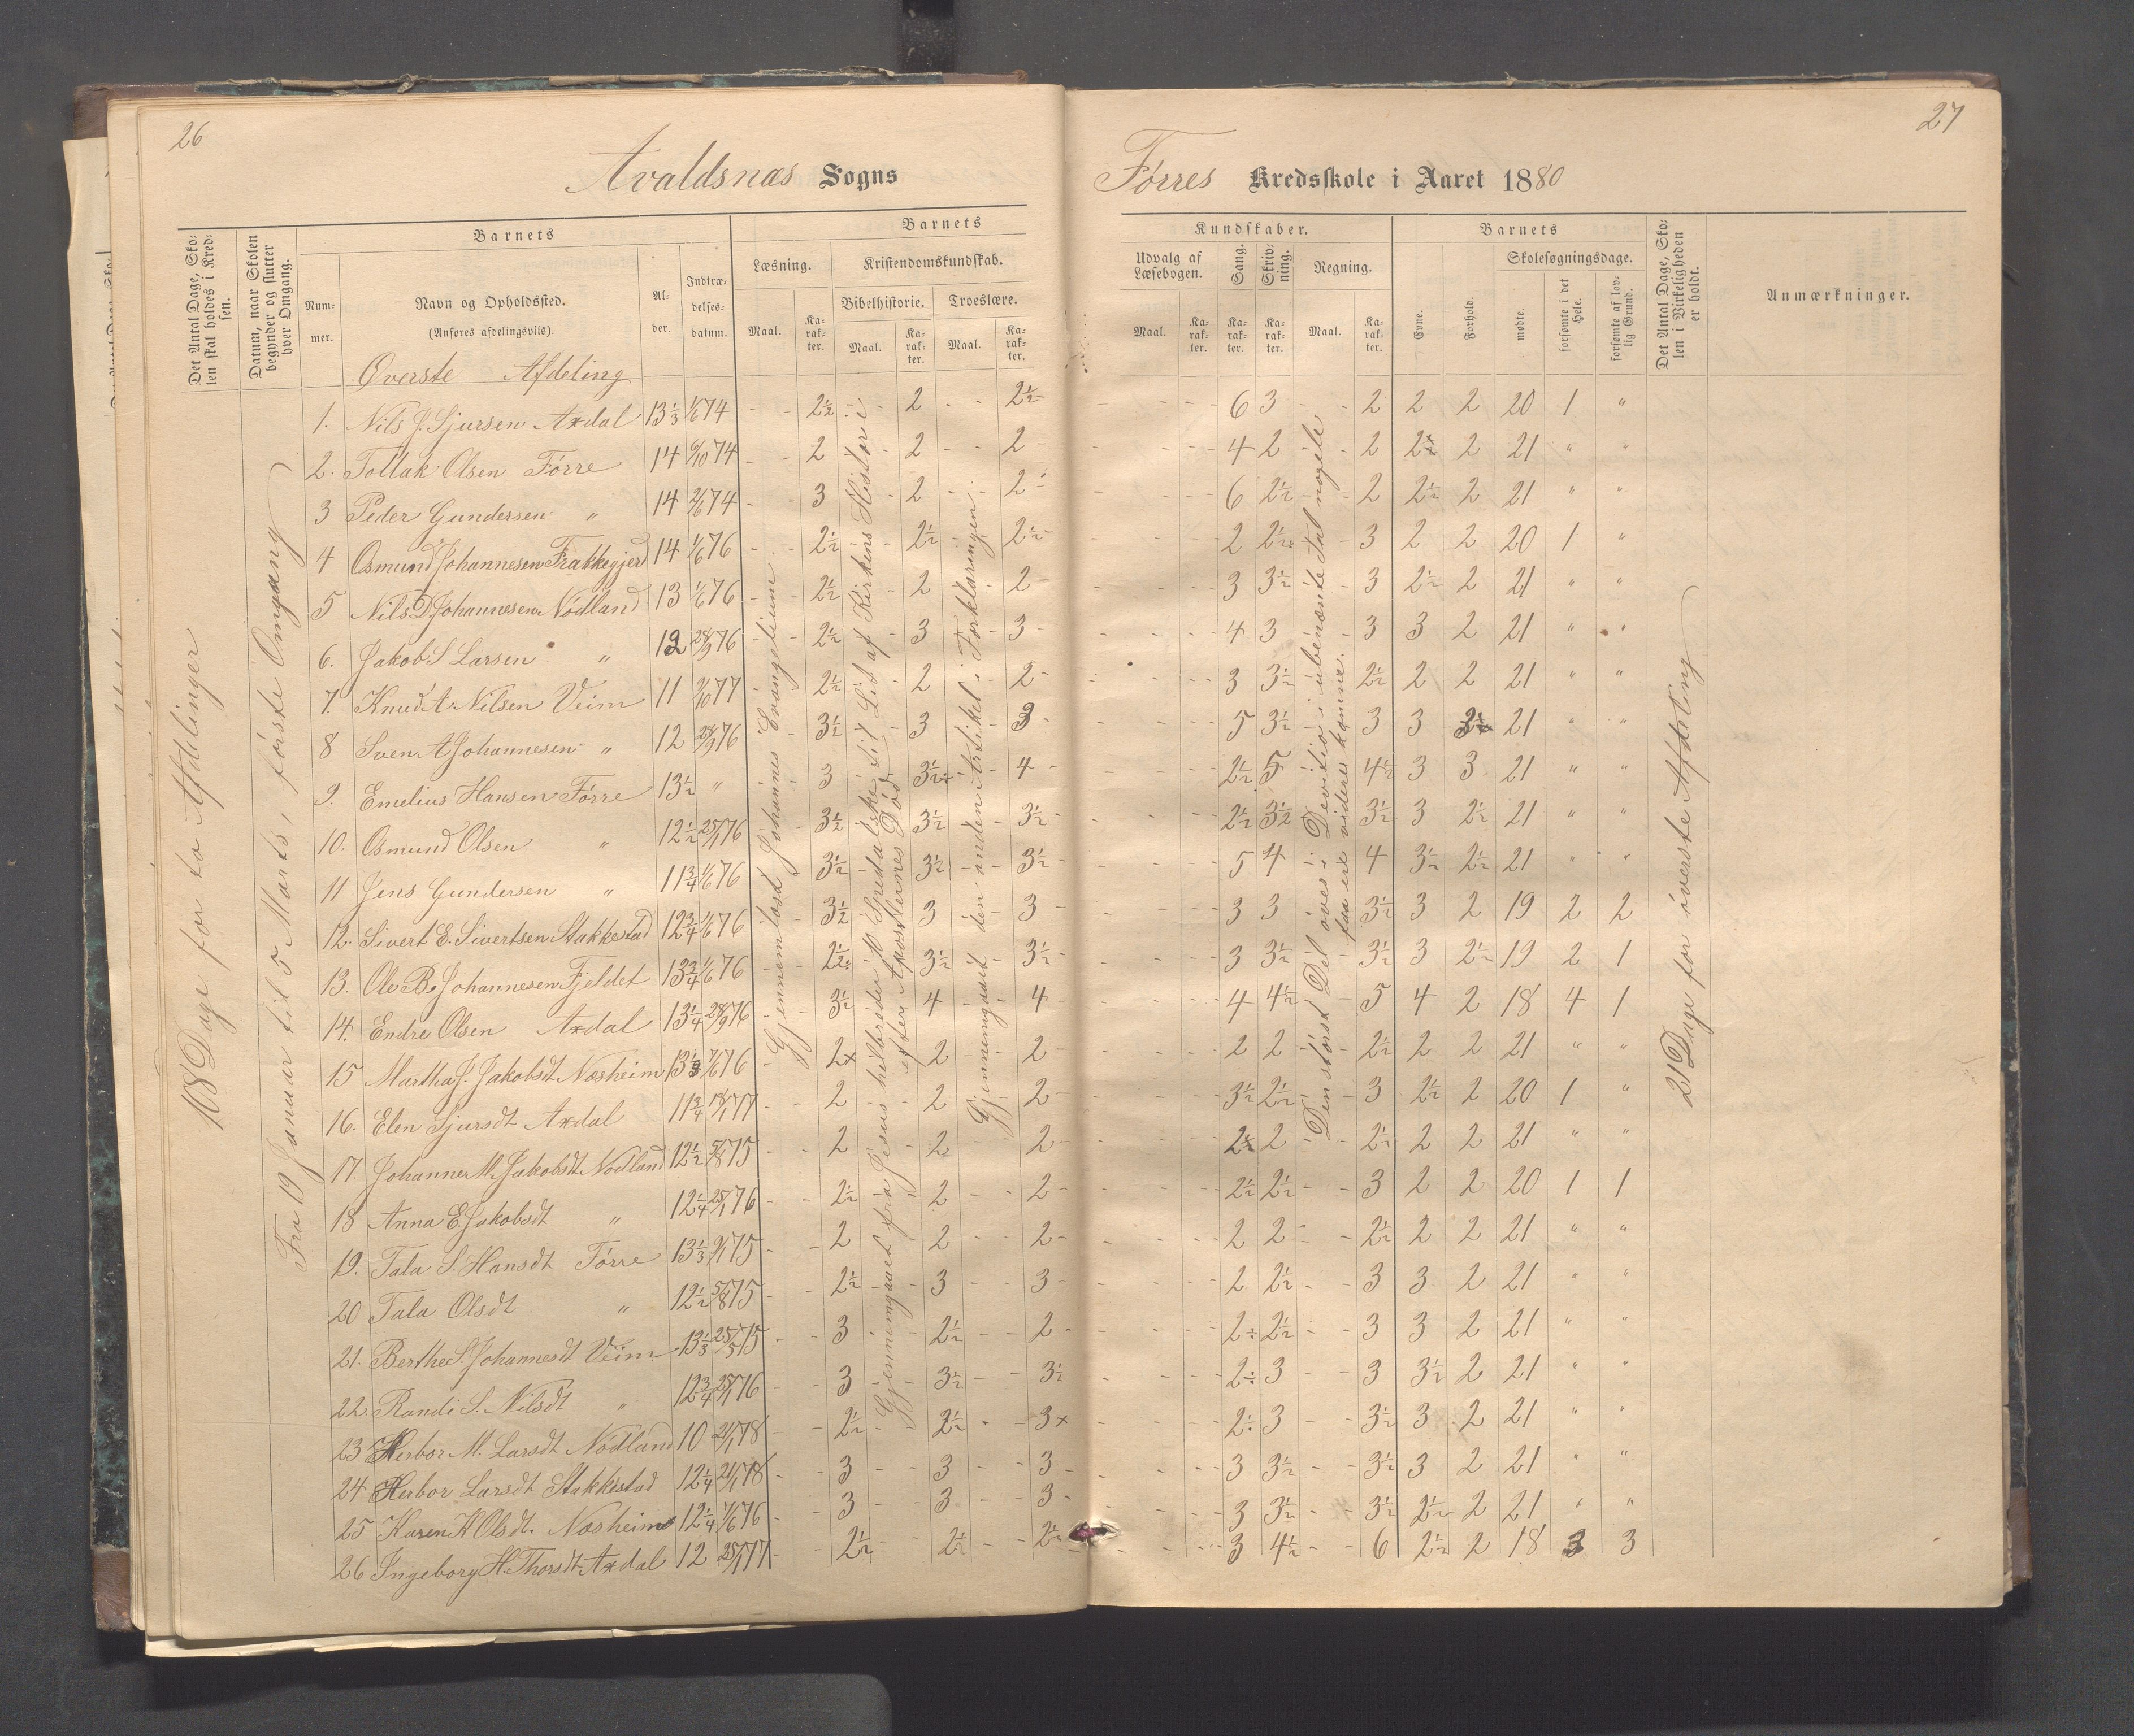 26
Avaldsnæs Sogns
Det Antal Dage, Skolen skal holdes i Kredsen.
Datum, naar Skolen begynder og slutter hver Omgang.
Barnets
Nummer.
Navn og Opholdssted.
(Anføres afdelingsviis).
Alder.
Indtrædelsesdatum.
Barnets
Læsning.
Kristendomskundskab.
Bibelhistorie.
Troeslære.
Maal.
Karakter.
Maal.
Karakter.
Maal.
Karakter.
Øverste Afdeling
1. Nils J. Sjursen Axdal 13 1/3 1/6 74 - - 2 1/2 - - 2 - - 2 1/2
2. Tollak Olsen Førre 14 6/10 74 - - 2 - 2 - - 2
3 Peder Gundersen " 14 2/6 74 - - 3 - 2 - - 2
4 Osmund Johannesen Frakkegjerd 14 1/6 76 - - 2 1/2 - 2 1/2 - 2 1/2
5 Nils D Johannesen Nødland 13 1/6 76 - 2 1/2 - 2 - 2
6. Jakob S Larsen " 12 28/9 76 - 2 1/2 - 3 - 3
7. Knud A. Nilsen Veim 11 2/10 77 - 2 1/2 - 2 - 2
8 Sven A Johannesen " 12 28/9 76 - 3 1/2 - 3 - 3
9. Emelius Hansen Førre 13 1/2 " - 3 - 3 1/2 - 4
10. Osmund Olsen " 12 1/2 25/1 76 - 3 1/2 - 3 1/2 - 3 1/2
11 Jens Gundersen " 11 3/4 1/6 76 - 3 1/2 - 3 1/2 - 3 1/2
12. Sivert E. Sivertsen Stakkestad 12 3/4 1/6 76 - 3 1/2 3 - 3
13. Ole B. Johannesen Fjeldet 13 3/4 1/6 76 - 2 1/2 3 1/2 - 3 1/2
14. Endre Olsen Axdal 13 1/4 28/9 76 - 3 1/2 4 - 4
15 Martha J. Jakobsdt Næsheim 13 1/3 7/6 76 - 2x 2 - 2
16. Elen Sjursdt Axdal 11 3/4 18/1 77 - - 2 2 - 2
17. Johanne M. Jakobsdt Nødland 12 1/2 5/8 75 - - 2 - 2 - 2
18 Anna E. Jakobsdt " 12 1/4 25/1 76 - - 2 1/2 2 - - 2
19. Tala S. Hansdt Førre 13 1/3 9/1 75 - - 2 - 2 - - 2
20 Tala Olsdt " 12 1/2 5/8 75 - - 2 1/2 - 3 - - 3
21. Berthe S. Johannesdt Veim 13 1/3 25/5 75 - - 3 - 2 1/2 - - 2
22. Randi S. Nilsdt " 12 3/4 25/1 76 - - 3 - 3 1/2 - 3 1/2
23 Herbor M. Larsdt Nødland 10 21/1 78 - - 2 1/2 - 2 1/2 - - 3x
24 Herbor Larsdt Stakkestad 12 1/4 21/1 78 - - 3 - - 3 - - 3
25 Karen K Olsdt. Næsheim 12 1/4 7/6 76 - - 3 - - 3 - - 3
26 Ingeborg H. Thorsdt Axdal 12 25/1 77 - - 2 1/2 - - 2 1/2 - - 2 1/2
108 Dage for to Afdelinger
Fra 19 Januar til 5 Marts, første Omgang
Gjennemlæst Johannes Evangelium
Gjennemgaaet fra Jesus helbreder 10 Spedalske til Lidt af Kirkens Historie
efter Apostlernes Død
Gjennemgaaet den anden Artikel i Forklaringen
27
Førres Kredsskole i Aaret 1880
Kundskaber.
Udvalg af Læsebogen.
Sang.
Skrivning.
Regning.
Maal.
Karakter.
Karakter.
Karakter.
Maal.
Karakter.
Barnets
Evne.
Forhold.
Skolesøgningsdage.
mødte.
forsømte i det Hele.
forsømte af lovlig Grund.
Det Antal Dage, Skolen i Virkeligheden er holdt.
Anmærkninger.
6 3 - - 2 2 2 20 1 "
4 2 - 2 2x 2 21 " "
6 2 1/2 - - 2 2 1/2 2 21 " "
2 2 1/2 - 3 2 2 20 1 "
3 3 1/2 - 3 2 1/2 2 21 " "
4 3 - 3 3 2 21 " "
3 3 1/2 2 1/2 2 2 21 " "
5 3 1/2 3 3 2 1/2 21 " "
2 1/2 5 4 1/2 3 3 21 " "
2 1/2 3 1/2 3 1/2 3 2 1/2 21 " "
5 4 4 3 1/2 2 1/2 21 " "
3 3 3 1/2 3 2 19 2 2
3 3 1/2 3 1/2 3 2 1/2 19 2 1
4 4 1/2 - 5 4 2 18 4 1
2 2 - 2 1/2 2 2 21 " "
3 1/2 2 1/2 - 3 2 1/2 2 20 1 "
2x 2 - 2 1/2 2 2 21 " "
2 1/2 2 1/2 - - 3 2 2 20 1 1
2 2 - - 2 1/2 2 2 21 " "
2 2 1/2 - - 3 3 2 21 " "
2÷ 2 1/2 - - 3 3 2 21 " "
2÷ 3 - - 3 3 1/2 2 21 " "
2÷ 3 - - 3 1/2 3 2 21 " "
3 3 1/2 - - 3 1/2 3 2 21 " "
3 3 1/2 - - 3 1/2 2 1/2 2 21 " "
3 4 1/2 - - 6 2 1/2 2 18 3 3
Den størst Del øves i Division i ubenævnte Tal nogle
faa ere videre komne.
21 Dage for øverste Afdeling